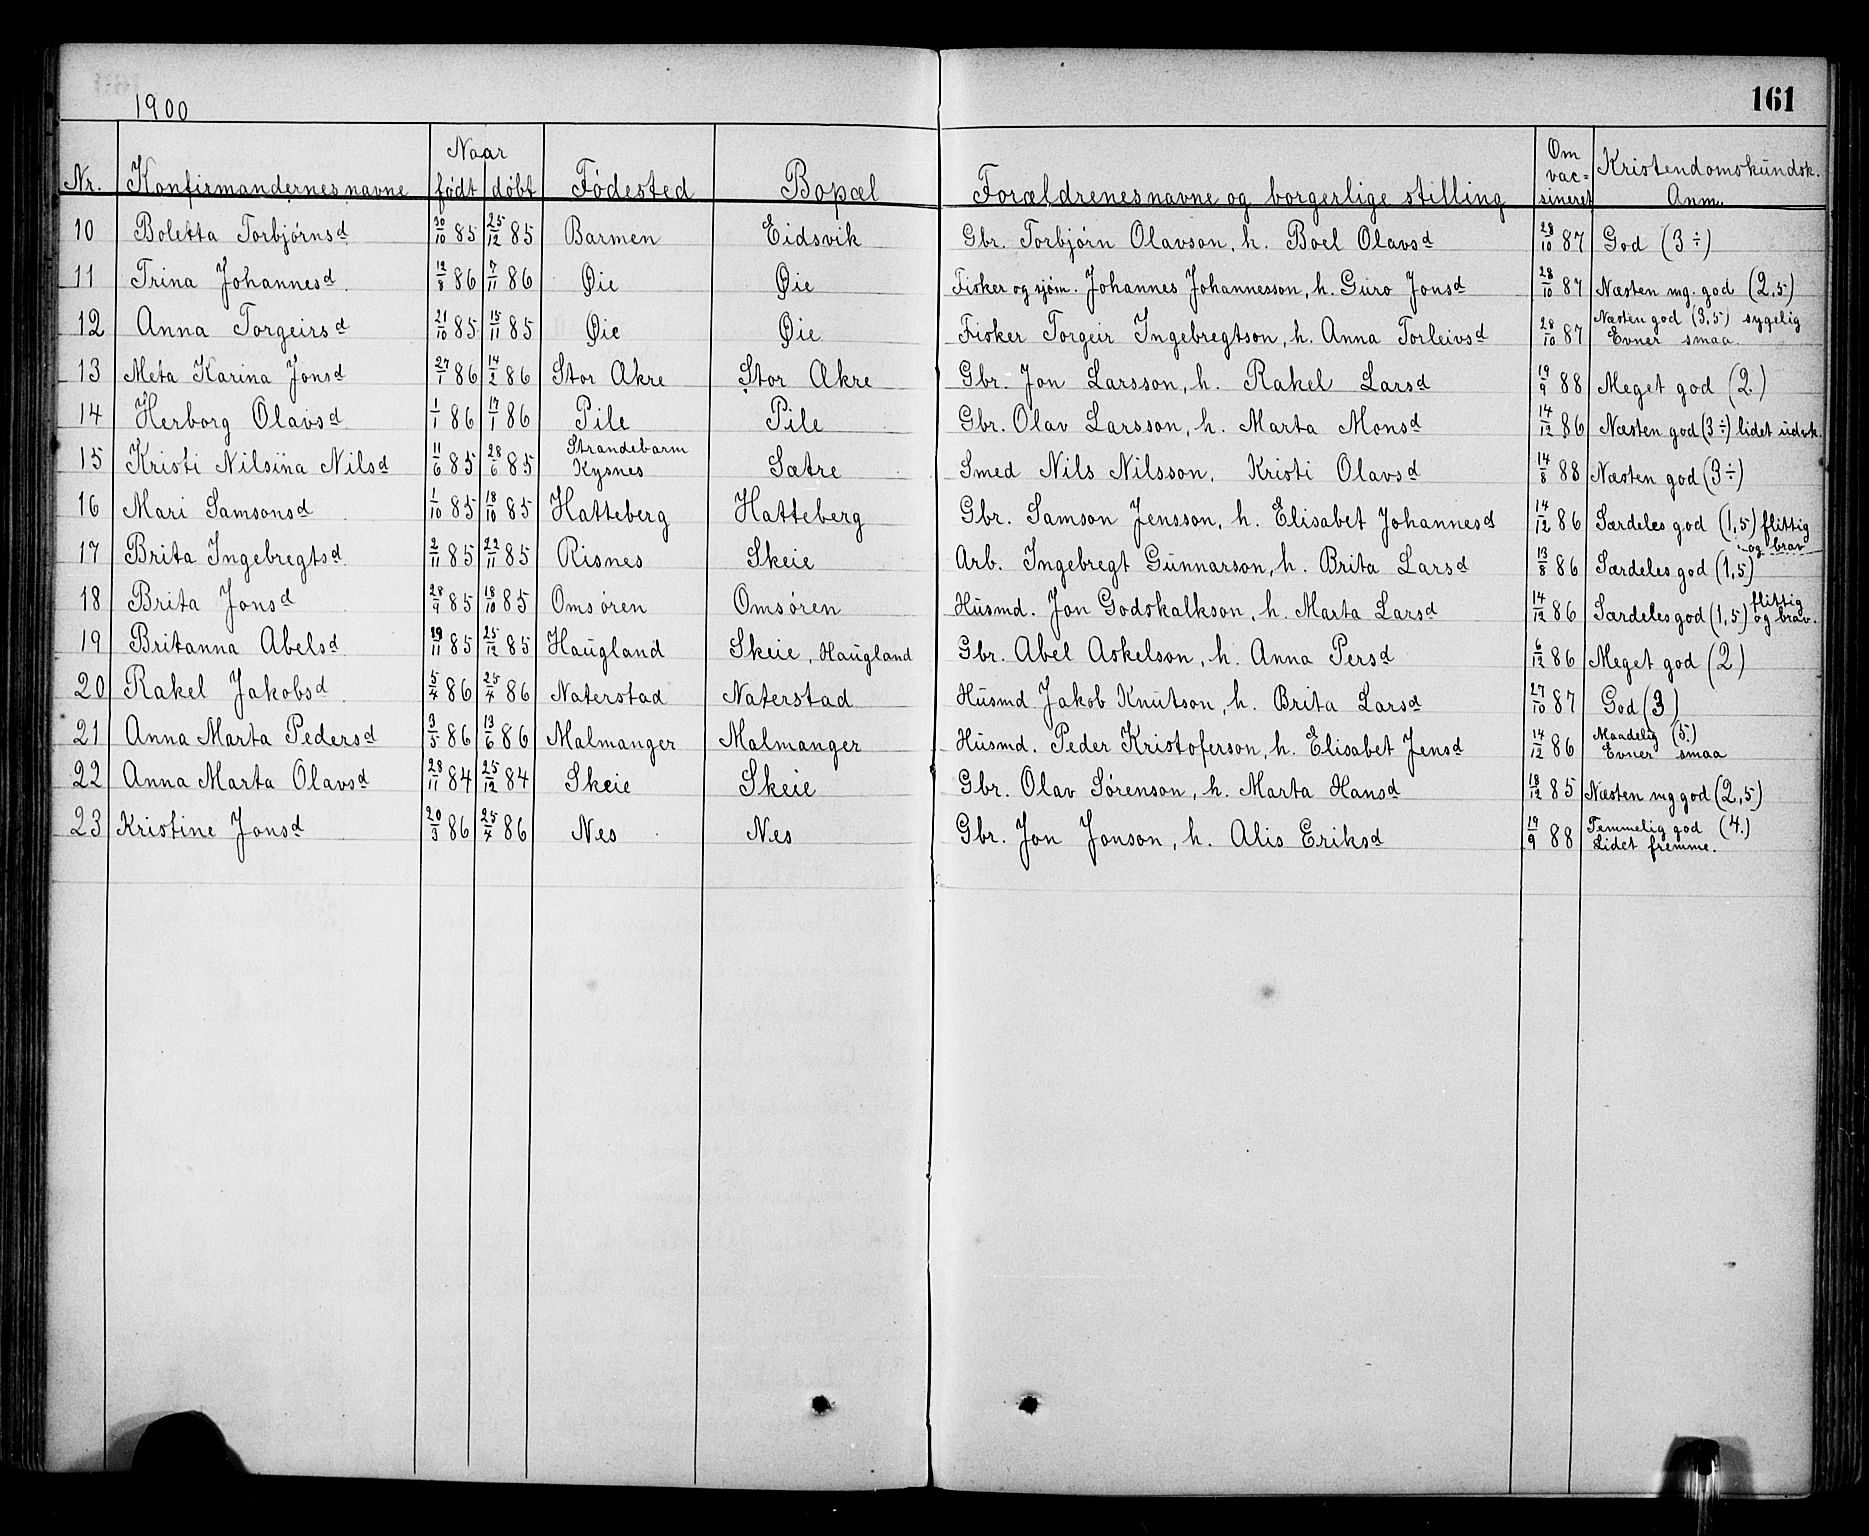 1900
161
Nr. Konfirmandernes navne Naar født døbt Fødested Bopæl Forældrenes navne og borgerlige stilling Om vac-sineret Kristendomskundsk. Anm.
10 Boletta Torbjørnsd 30/10 85 25/12 85 Barmen Eidsvik Gbr. Torbjørn Olavson, h. Boel Olavsd 28/10 87 God (3÷)
11 Trina Johannesd. 12/8 86 7/11 86 Øie Øie Fisker og sjøm. Johannes Johannesson, h. Guro Jonsd 28/10 87 Næsten mg. god (2,5)
12 Anna Torgeirsd 21/10 85 15/11 85 Øie Øie Fisker Torgeir Ingebregtson, h. Anna Torleivsd 28/10 87 Næsten god (3,5) sygelig
Evner smaa.
13 Meta Karina Jonsd 27/1 86 14/2 86 Stor Akre Stor Akre Gbr. Jon Larsson, h. Rakel Larsd 19/9 88 Meget god (2.)
14 Herborg Olavsd 1/1 86 17/1 86 Pile Pile Gbr. Olav Larsson, h. Marta Monsd 14/12 86 Næsten god (3÷) lidet udvk.
15 Kristi Nilsina Nilsd 11/6 85 28/6 85 Strandebarm
Kysnes Sætre Smed Nils Nilsson, Kristi Olavsd 14/8 88 Næsten god (3÷)
16 Mari Samsonsd 1/10 85 18/10 85 Hatteberg Hatteberg Gbr. Samson Jensson, h. Elisabet Johannesd 14/12 86 Særdeles god (1,5) flittig
og brav
17 Brita Ingebregtsd 2/11 85 22/11 85 Risnes Skeie Arb. Ingebregt Gunnarson, h. Brita Larsd 13/8 86 Særdeles god (1,5)
18 Brita Jonsd 28/9 85 18/10 85 Omsøren Omsøren Husmd. Jon Godskalkson, h. Marta Larsd 14/12 86 Særdeles god (1,5) flittig
og brav.
19 Britanna Abelsd 29/11 85 25/12 85 Haugland Skeie, Haugland Gbr. Abel Askelson, h. Anna Persd 6/12 86 Meget god (2)
20 Rakel Jakobsd 5/4 86 25/4 86 Naterstad Naterstad Husmd Jakob Knutson, h. Brita Larsd 27/10 87 God (3)
21 Anna Marta Pedersd 3/5 86 13/6 86 Malmanger Malmanger Husmd. Peder Kristoferson, h. Elisabet Jensd 14/12 86 Maadelig (5.)
Evner smaa
22 Anna Marta Olavsd 28/11 84 25/12 84 Skeie Skeie Gbr. Olav Sørenson, h. Marta Hansd 18/12 85 Næsten mg god (2,5)
23 Kristine Jonsd 20/3 86 25/4 86 Nes Nes Gbr. Jon Jonson, h. Alis Eriksd 19/9 88 Temmelig god (4.)
Lidet fremme.